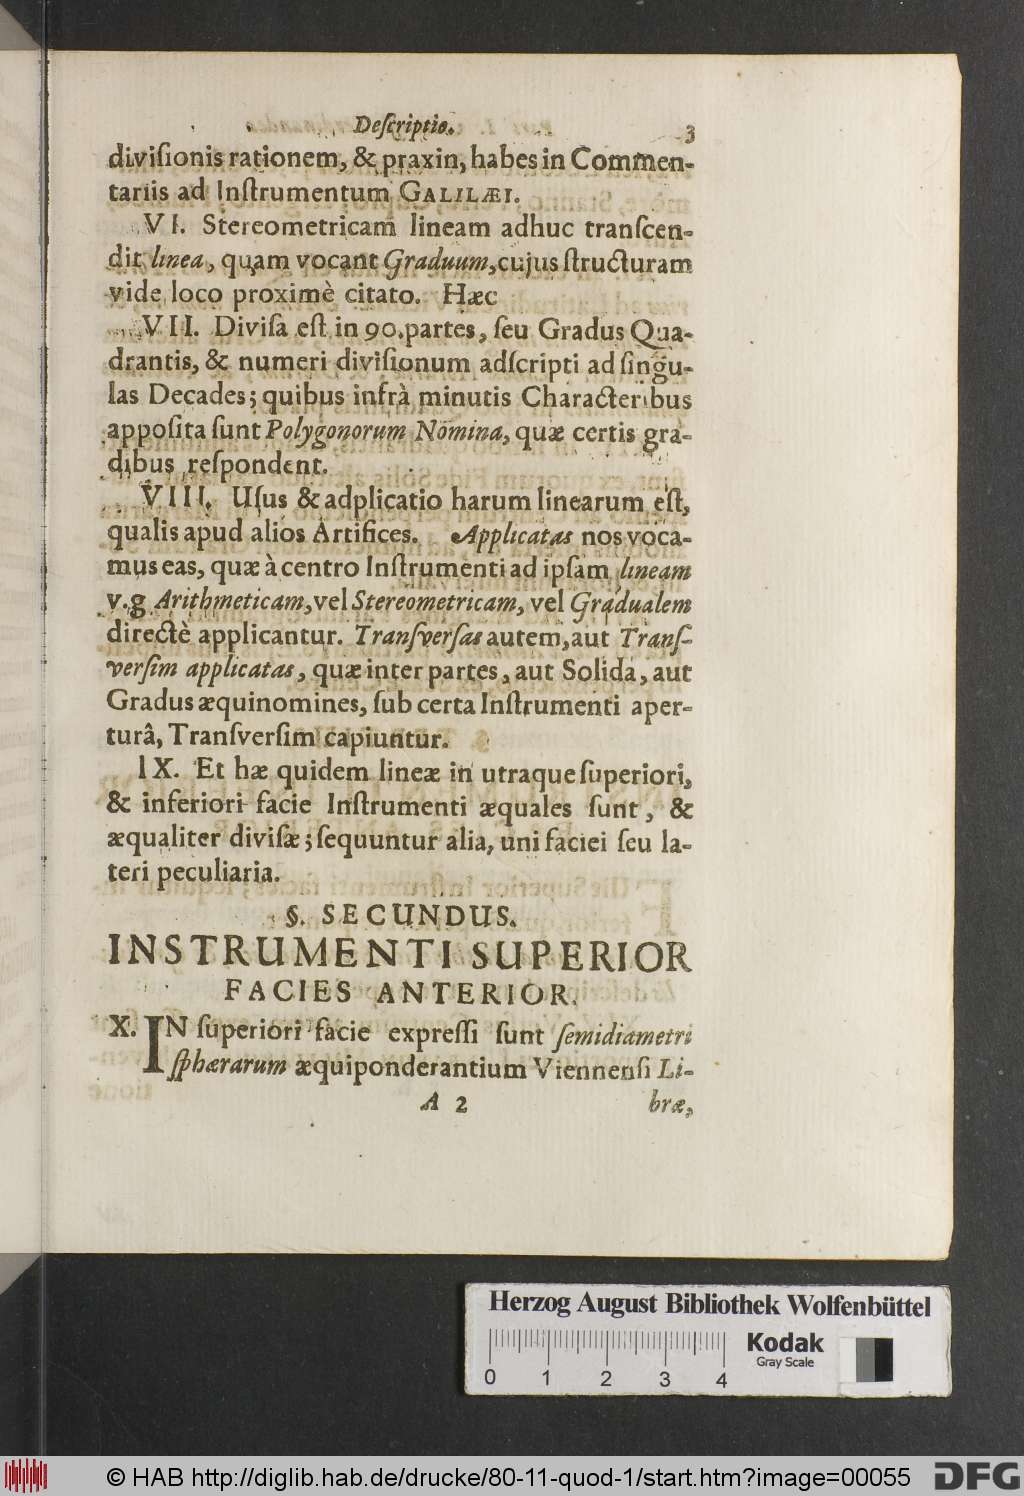 Deſcriptio. 3
diviſionis rationem, & praxin, habes in Commen-
tariis ad Inſtrumentum GALILÆI.
VI. Stereometricam lineam adhuc tranſcen-
dit linea, quam vocant Graduum, cujus ſtructuram
vide loco proximè citato. Hæc
VII. Diviſa eſt in 90. partes, ſeu Gradus Qua-
drantis, & numeri diviſionum adſcripti ad ſingu-
las Decades; quibus infrà minutis Characteribus
appoſita ſunt Polygonorum Nomina, quæ certis gra-
dibus reſpondent.
VIII. Uſus & adplicatio harum linearum eſt,
qualis apud alios Artifices. Applicatas nos voca-
mus eas, quæ à centro Inſtrumenti ad ipſam lineam
v.g. Arithmeticam, vel Stereometricam, vel Gradualem
directè applicantur. Tranſverſas autem, aut Tranſ-
verſim applicatas, quæ inter partes, aut Solida, aut
Gradus æquinomines, ſub certa Inſtrumenti aper-
turâ, Tranſverſim capiuntur.
IX. Et hæ quidem lineæ in utraque ſuperiori,
& inferiori facie Inſtrumenti æquales ſunt, &
æqualiter diviſæ; ſequuntur alia, uni faciei ſeu la-
teri peculiaria.
§. SECUNDUS.
INSTRUMENTI SUPERIOR
FACIES ANTERIOR.
X. IN ſuperiori facie expreſſi ſunt ſemidiametri
ſphærarum æquiponderantium Viennenſi Li-
A 2 bræ,
Herzog August Bibliothek Wolfenbüttel
Kodak
Gray Scale
0 1 2 3 4
© HAB http://diglib.hab.de/drucke/80-11-quod-1/start.htm?image=00055
DFG